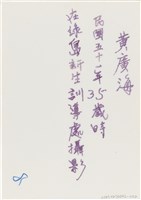 黃廣海
民國五十一年35歲時
在綠島新生訓導處攝影